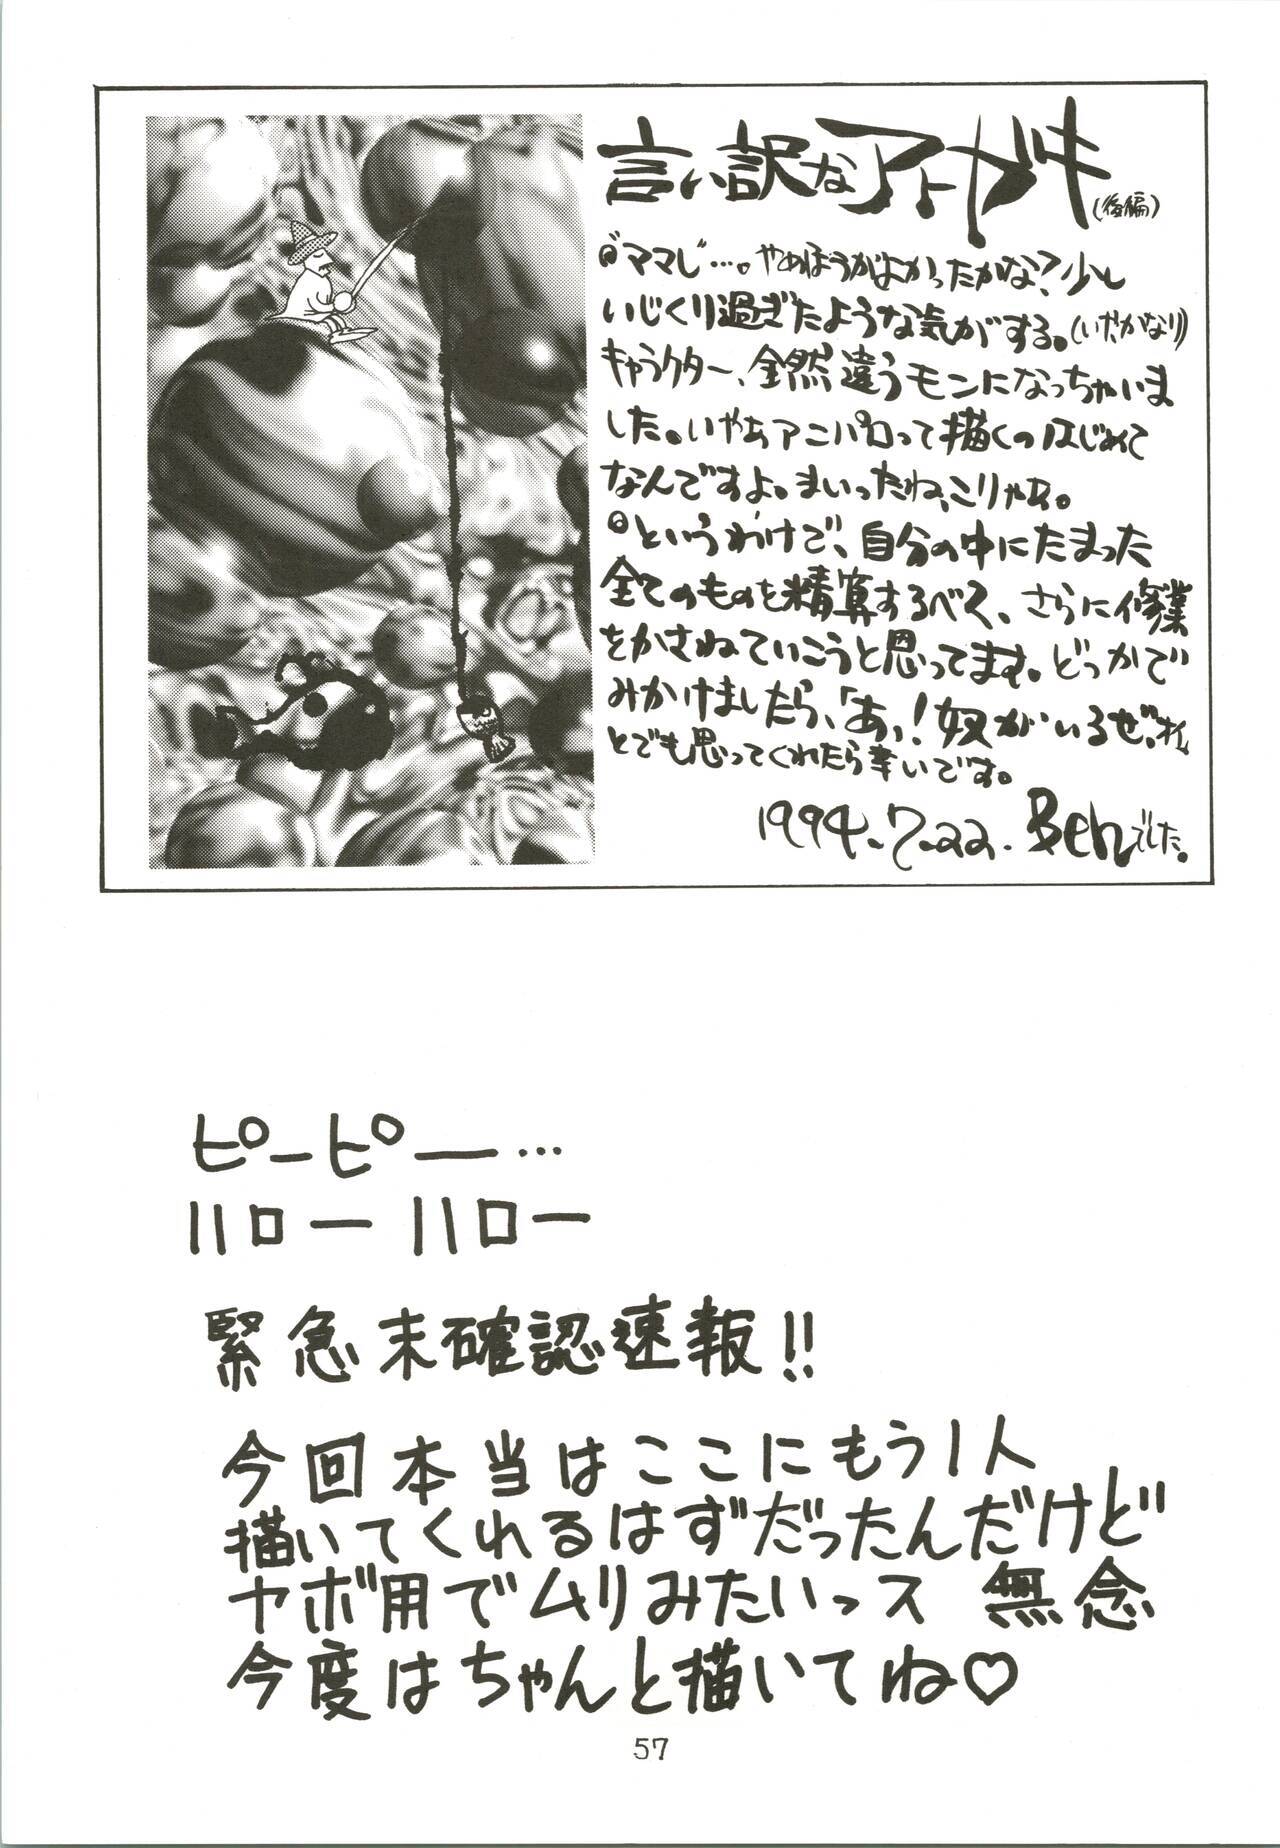 言い訳なアトガキ(後編)
◎ママじ…。やめほうがよかったかな？少し
いじくり過ぎたような気がする。(いやかなり)
キャラクター、全然違うモンになっちゃいま
した。いやぁアニパロって描くのはじめて
なんですよ。まいったね、こりゃぁ。
◎というわけで、自分の中にたまった
全てのものを精算するべく、さらに修業
をかさねていこうと思ってます。どっかで
みかけましたら、「あっ！奴がいるぜ、オイ」
とでも思ってくれたら幸いです。
1994.7.22. Benでした。
ピーピー…
ハローハロー
緊急未確認速報!!
今回本当はここにもう1人
描いてくれるはずだったんだけど
ヤボ用でムリみたいっス 無念
今度はちゃんと描いてね♡
57